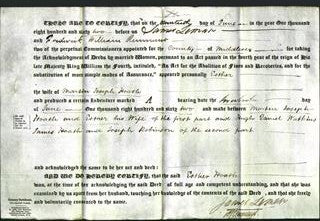 THESE ARE TO CERTIFY, that on the day of June in the year One thousand
eight hundred and sixty two before us James Leman
and Frederick William Remnant
two of the perpetual Commissioners appointed for the County of Middlesex
for taking the Acknowledgment of Deeds by married Women, pursuant to an Act passed in the fourth year of the reign of
his late Majesty King William the Fourth, intituled, "An Act for the Abolition of Fines and Recoveries, and for
the substitution of more simple modes of Assurance," appeared personally Esther
the wife of Martin Joseph Heath
and produced a certain Indenture marked A bearing date the day of
June One thousand eight hundred and sixty two and made between Martin Joseph
Heath and Esther his Wife of the first part and Hugh Daniel Watkins
James Heath and Joseph Robinson of the second part
and acknowledged the same to be her act and deed:
AND WE DO HEREBY CERTIFY, that the said Esther Heath
was, at the time of her acknowledging the said Deed, of full age and competent understanding, and that she was
examined by us apart from her husband, touching her knowledge of the contents of the said Deed, and that she freely
and voluntarily consented to the same.
James Leman